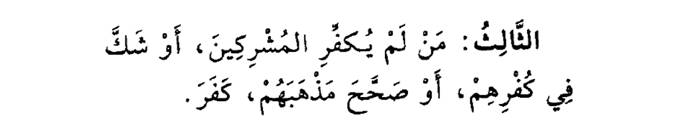 الثَّالِثُ: مَنْ لَمْ يُكفِّرِ المُشْرِكِينَ، أَوْ شَكَّ
فِي كُفْرِهِمْ، أَوْ صَحَّحَ مَذْهَبَهُمْ، كَفَرَ.